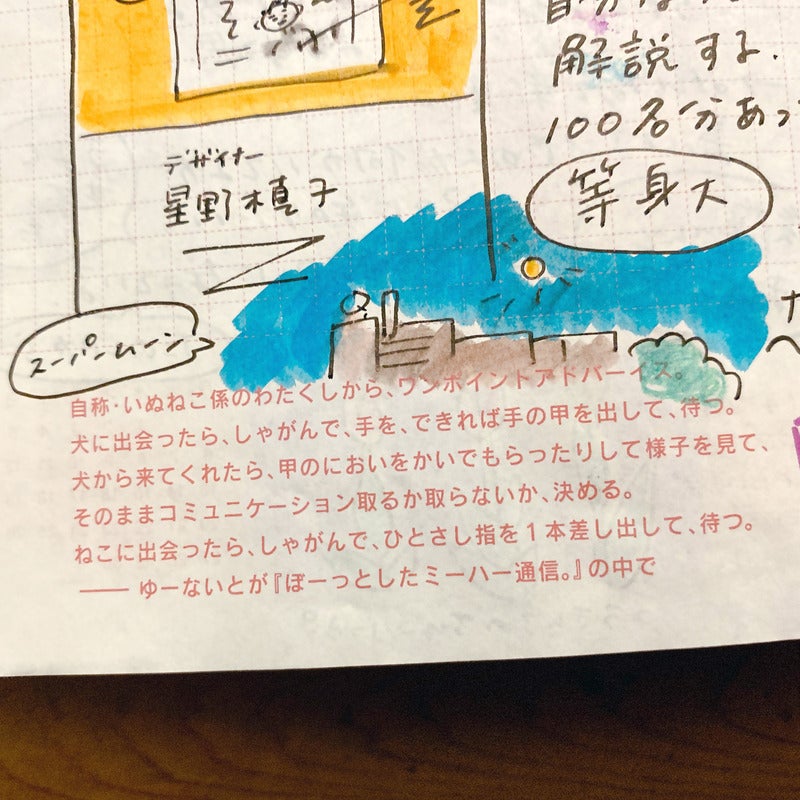 そ
解説する.
100名分あっ
等身大
デザイナー
星野槙子
スーパームーン
自称・いぬねこ係のわたくしから、ワンポイントアドバーイス。
犬に出会ったら、しゃがんで、手を、できれば手の甲を出して、待つ。
犬から来てくれたら、甲のにおいをかいでもらったりして様子を見て、
そのままコミュニケーション取るか取らないか、決める。
ねこに出会ったら、しゃがんで、ひとさし指を1本差し出して、待つ。
—— ゆーないとが『ぼーっとしたミーハー通信。』の中で